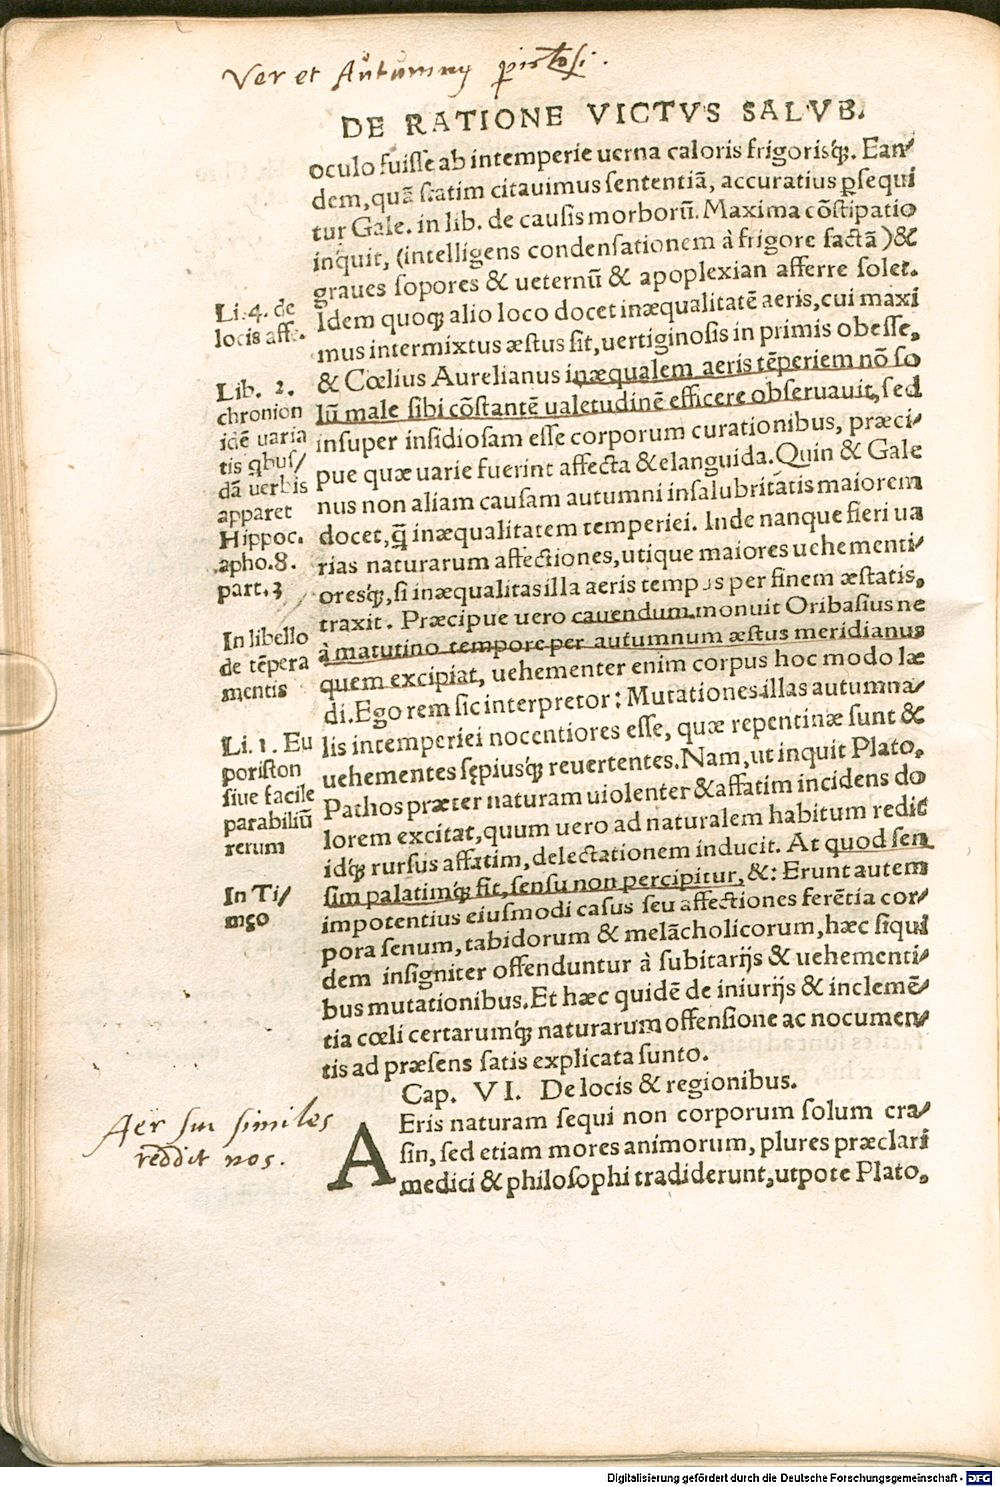 Ver et Autumnꝰ
DE RATIONE VICTVS SALVB.
oculo fuisse ab intemperie uerna caloris frigorisq́;. Ean/
dem, quā statim citauimus sententiā, accuratius ꝑsequi
tur Gale. in lib. de causis morborū. Maxima cōstipatio
inquit, (intelligens condensationem à frigore factā) &
graues sopores & ueternū & apoplexian afferre solet.
Idem quoq; alio loco docet inæqualitatē aeris, cui maxi
mus intermixtus æstus sit, uertiginosis in primis obesse,
& Cœlius Aurelianus inæqualem aeris tēperiem nō so
lū male sibi cōstantē ualetudinē efficere obseruauit, sed
insuper insidiosam esse corporum curationibus, præci/
pue quæ uarie fuerint affecta & elanguida. Quin & Gale
nus non aliam causam autumni insalubritatis maiorem
docet, q̄ inæqualitatem temperiei. Inde nanque fieri ua
rias naturarum affectiones, utique maiores uehementi/
oresq́;, si inæqualitas illa aeris tempus per finem æstatis,
traxit. Præcipue uero cauendum monuit Oribasius ne
à matutino tempore per autumnum æstus meridianus
quem excipiat, uehementer enim corpus hoc modo læ
di. Ego rem sic interpretor: Mutationes illas autumna/
lis intemperiei nocentiores esse, quæ repentinæ sunt &
uehementes sępiusq́; reuertentes. Nam, ut inquit Plato,
Pathos præter naturam uiolenter & affatim incidens do
lorem excitat, quum uero ad naturalem habitum redit
idq́; rursus affatim, delectationem inducit. At quod sen
sim palatimq́; fit, sensu non percipitur, &: Erunt autem
impotentius eiusmodi casus seu affectiones ferētia cor/
pora senum, tabidorum & melācholicorum, hæc siqui
dem insigniter offenduntur à subitarijs & uehementi/
bus mutationibus. Et hæc quidē de iniurijs & inclemē/
tia cœli certarumq́; naturarum offensione ac nocumen/
tis ad præsens satis explicata sunto.
Cap. VI. De locis & regionibus.
AEris naturam sequi non corporum solum cra/
sin, sed etiam mores animorum, plures præclari
medici & philosophi tradiderunt, utpote Plato,
Li. 4. de
locis affe.
Lib. 2.
chronion
idē uaria
tis qbus/
dā uerbis
apparet
Hippoc.
apho. 8.
part. 3
In libello
de tēpera
mentis
Li. 1. Eu
poriston
siue facile
parabiliū
rerum
In Ti/
męo
Aer sui similes
reddit nos.
Digitalisierung gefördert durch die Deutsche Forschungsgemeinschaft - DFG